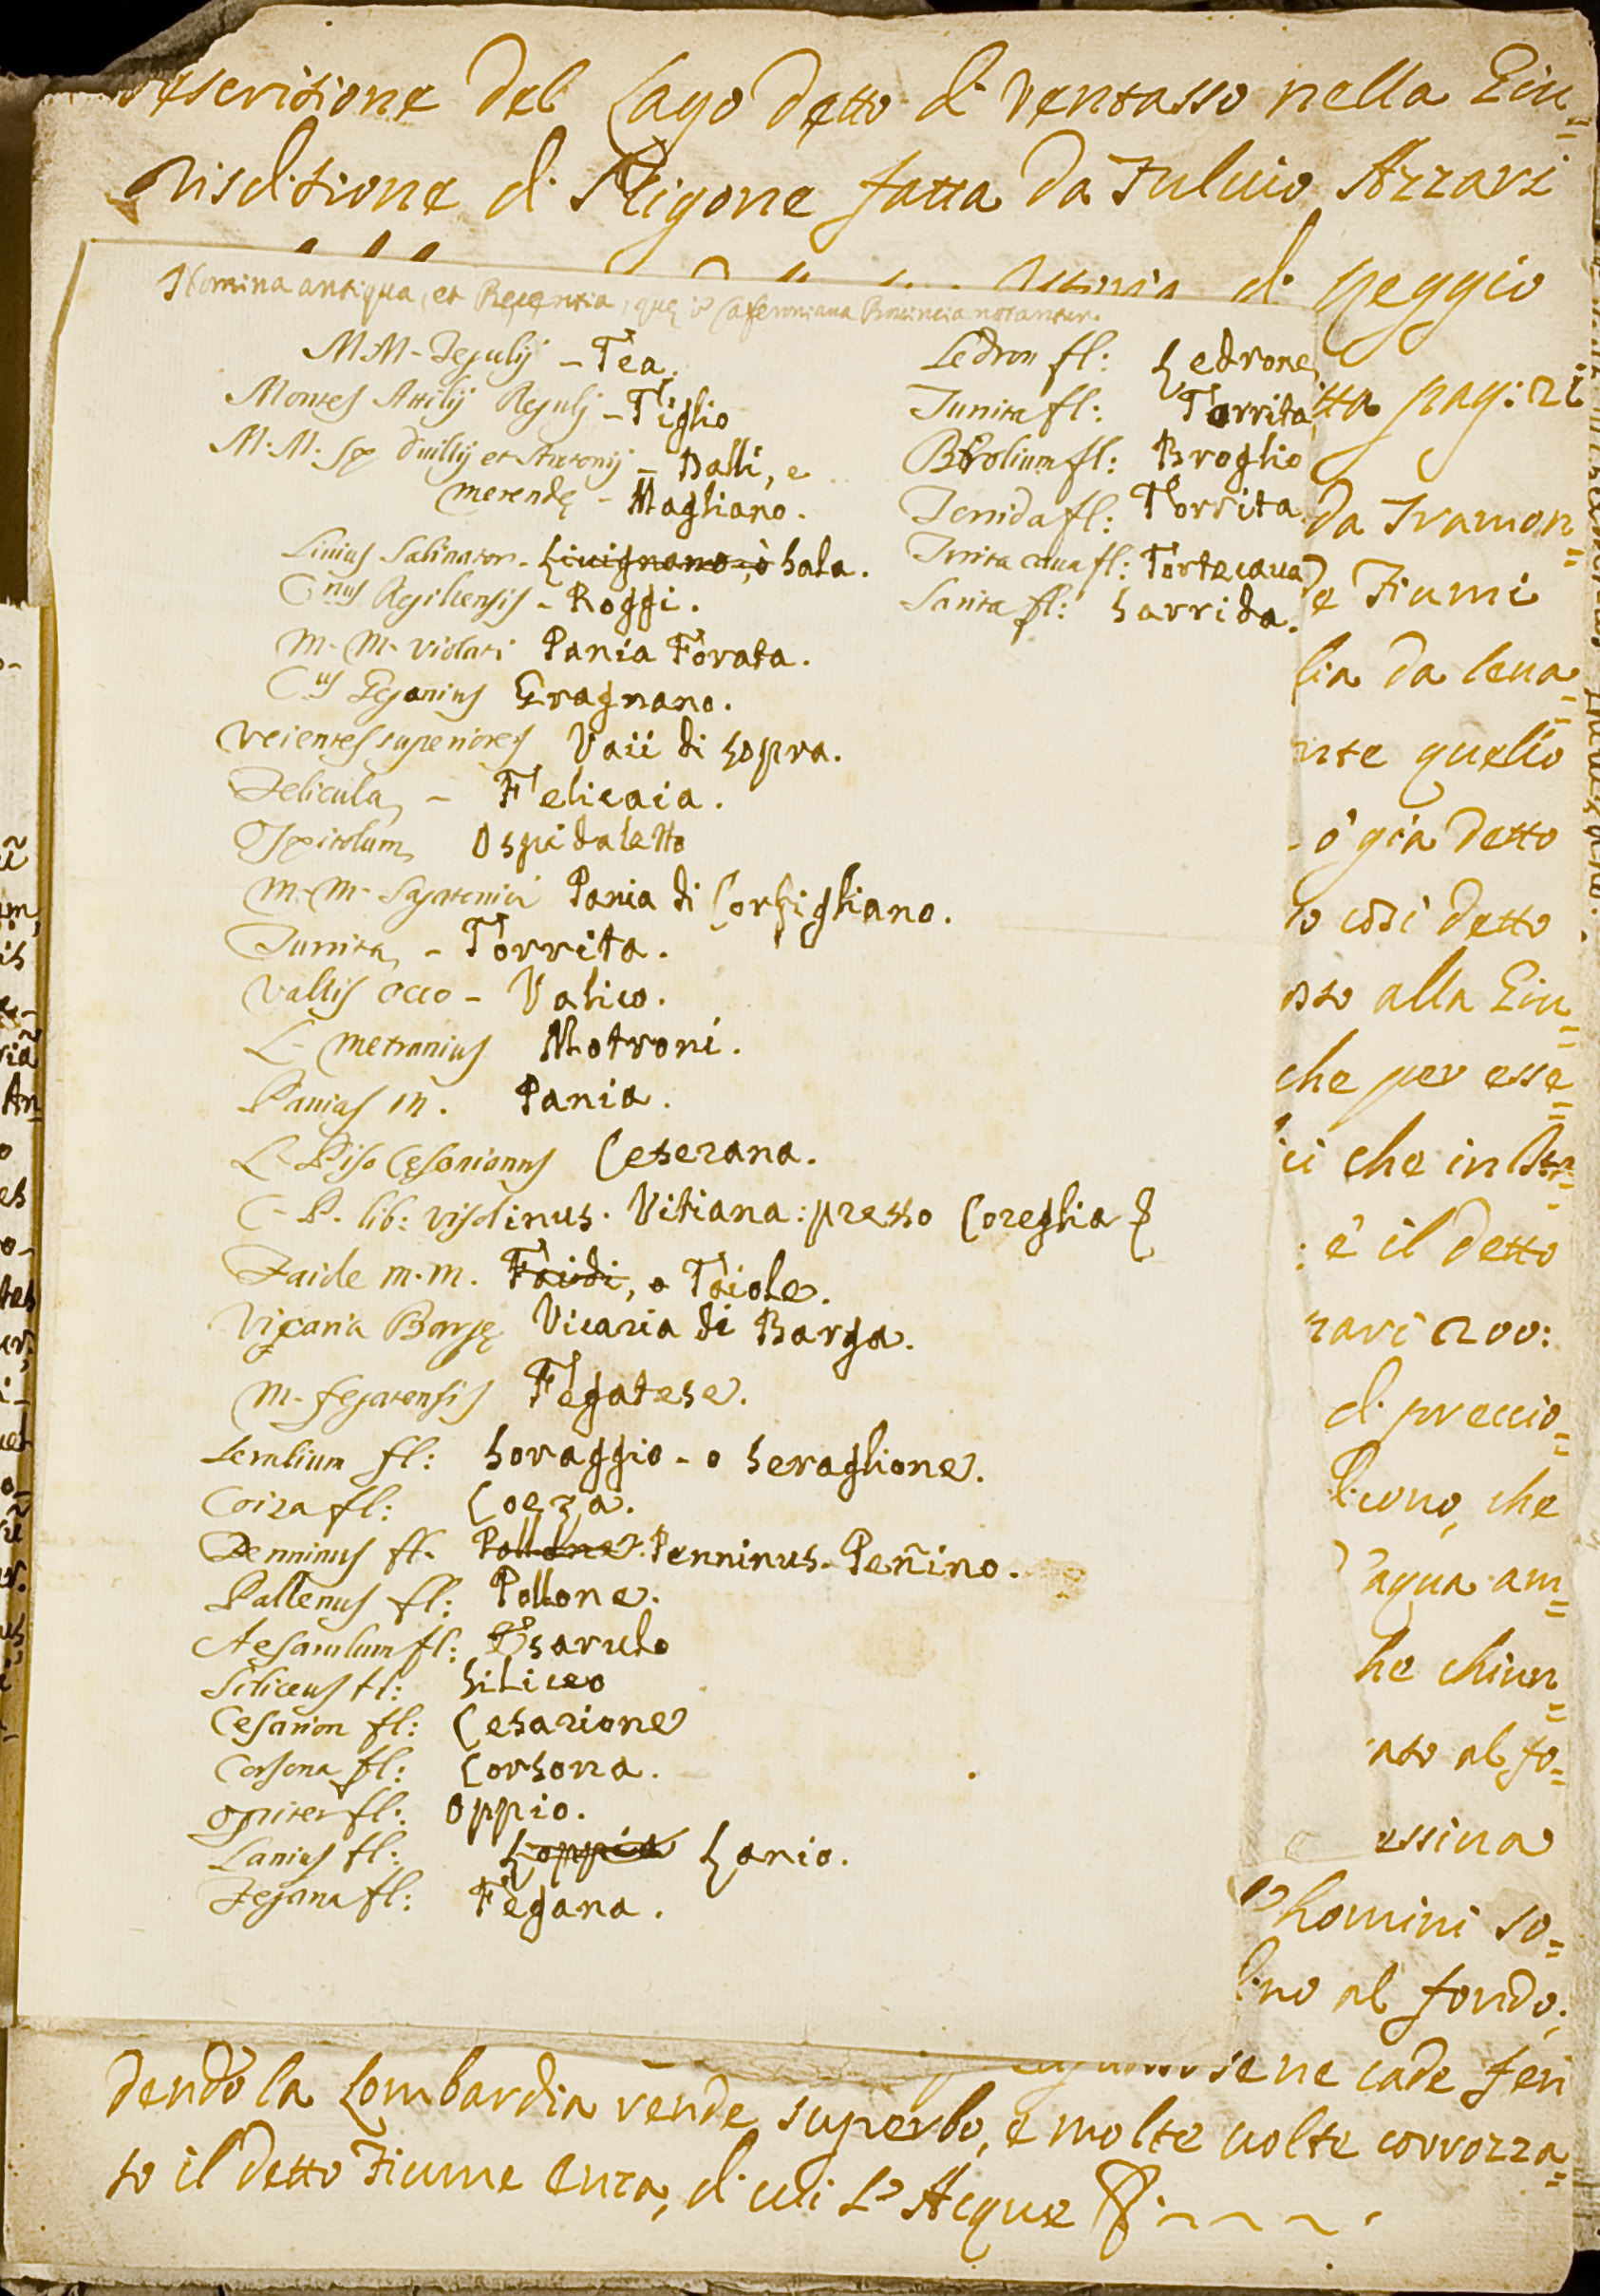 descritione del Lago detto di Ventasso nella Giu=
risditione di Rigone fatta da Fulvio Azzari
di Reggio
Nomina antiqua, et Recentia, quę in Caferoniana Provincia notantur.
M M - Tegulij - Tea.
Montes Attilij Regulj - Tiglio
M. M. Sp. Duillij et Antonij - Balli, e
merendę - Magliano.
Livius Salinator - Livignano, ò Sala.
C nus Regiliensis - Roggi.
M. M. violati Pania Forata.
C us Geganius Gragnano.
Veientes superiores Vaii di sopra.
Felicula, - Felicaia.
Ospitolum, Ospidaletto
M. M. Sagatenici Pania di Corfigliano.
Turrita, - Torrita.
Vallis occo - Valico.
L. Metranius Motroni.
Panias m. Pania.
L. Piso Cęsonianus Ceserana.
C. P. lib: visolinus. Vitiana: presso Coreglia
Faide m. m. Faidi, o Faiole.
Vicaria Bargę Vicaria di Barga.
M. fegatensis Fegatese.
Serulium fl: Soraggio - o Seraglione.
Coiza fl: Coeza.
Penninus fl. Pollone. Penninus - Peñino.
Pallenus fl: Pollone.
Aesarulum fl: Esarulo
Siliceus fl: Siliceo
Cesarion fl: Cesarione
Corsona fl: Corsona.
Opiter fl: Oppio.
Lanius fl: Loppia Lanio.
Fegana fl: Fegana.
Ledron fl: Ledrone
Turrita fl: Torrita
Brolium fl: Broglio
Torrida fl: Torrita
Turrita caua fl: Tortacaua
Sarrita fl: Sarrida.
tta pag: 21
da Tramon=
e Fiumi
lia da leua=
nte quello
- o' già detto
to così detto
osso alla Giu=
che per esse=
ci che in
: è il detto
rari 200:
di preccio=
licono, che
l'aqua am=
he chiun=
nto al fo=
ussina
homini so=
ino al fondo;
sene cade feri
dendo la Lombardia rende superbo, e molte uolte corrozza=
to il detto Fiume Enza, di cui L' Acque